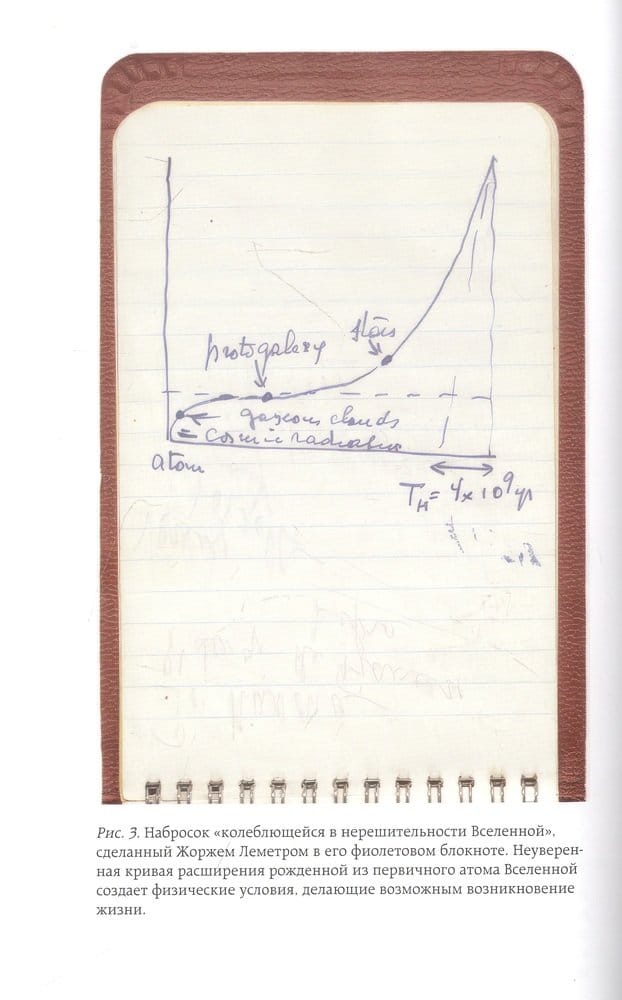 stars
protogalaxy
gaseous clouds
= cosmic radiation
atom
T_H = 4x10⁹ yr
Рис. 3. Набросок «колеблющейся в нерешительности Вселенной»,
сделанный Жоржем Леметром в его фиолетовом блокноте. Неуверен-
ная кривая расширения рожденной из первичного атома Вселенной
создает физические условия, делающие возможным возникновение
жизни.